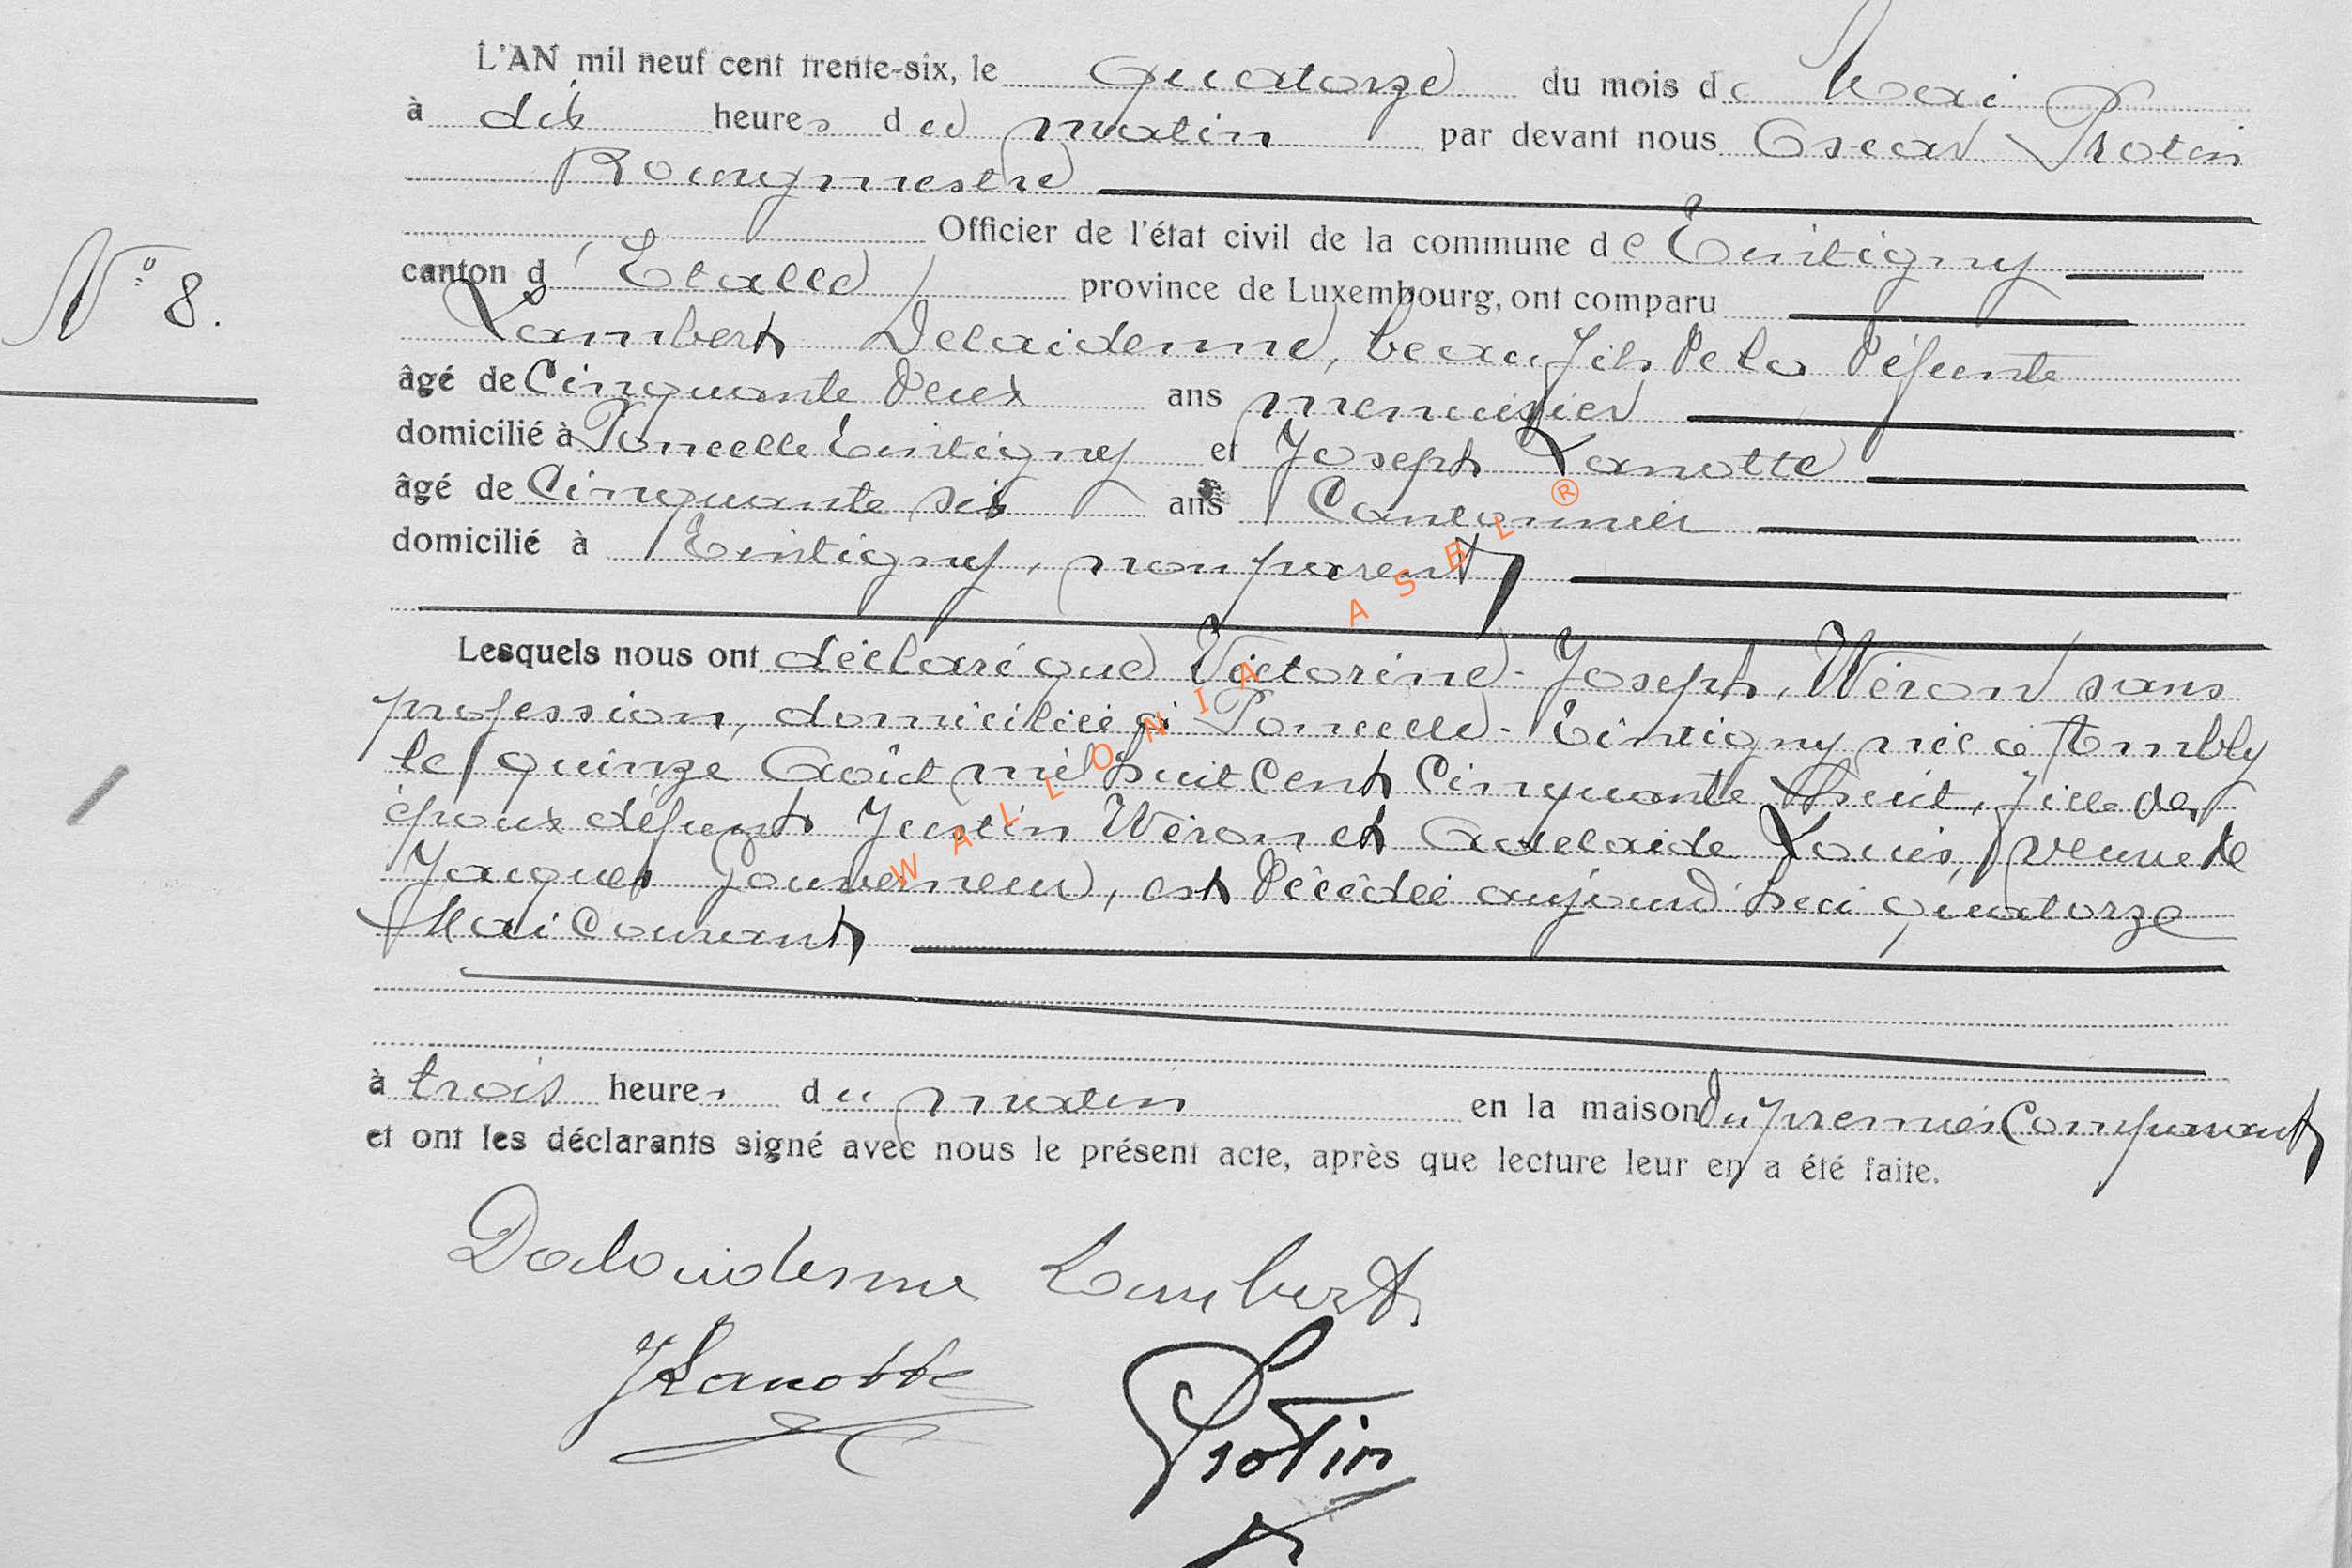 L'AN mil neuf cent trente-six, le quatorze du mois de Mai
à dix heures du matin par devant nous Oscar Protin
Bourgmestre
Officier de l'état civil de la commune de Tintigny
N° 8.
canton d'Etalle province de Luxembourg, ont comparu
Lambert Delaidenne, beau fils de la défunte
âgé de Cinquante deux ans menuisier
domicilié à Poncelle Tintigny et Joseph Lanotte
âgé de Cinquante six ans Cantonnier
domicilié à Tintigny, non parent
Lesquels nous ont déclaré que Victorine-Joseph, Wéron sans
profession, domiciliée à Poncelle-Tintigny née à Ambly
le quinze Août mil huit Cent Cinquante huit, fille des
époux défunts Justin Wéron et Adelaide Louis, veuve de
Jacques Gouverneur, est décédée aujourd'hui quatorze
Mai Courant
à trois heures du matin en la maison du premier Comparant
et ont les déclarants signé avec nous le présent acte, après que lecture leur en a été faite.
Dalaidenne Lambert
JLanotte
Protin
WALLONIA ASBL ®